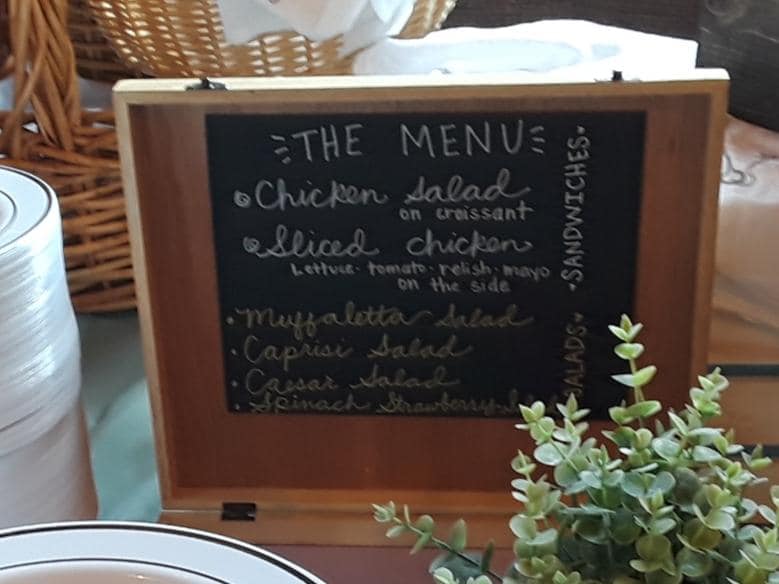 THE MENU
Chicken Salad
on croissant
Sliced chicken
Lettuce · tomato · relish · mayo
on the side
SANDWICHES
Muffaletta Salad
Caprisi Salad
Caesar Salad
Spinach Strawberry Salad
SALADS